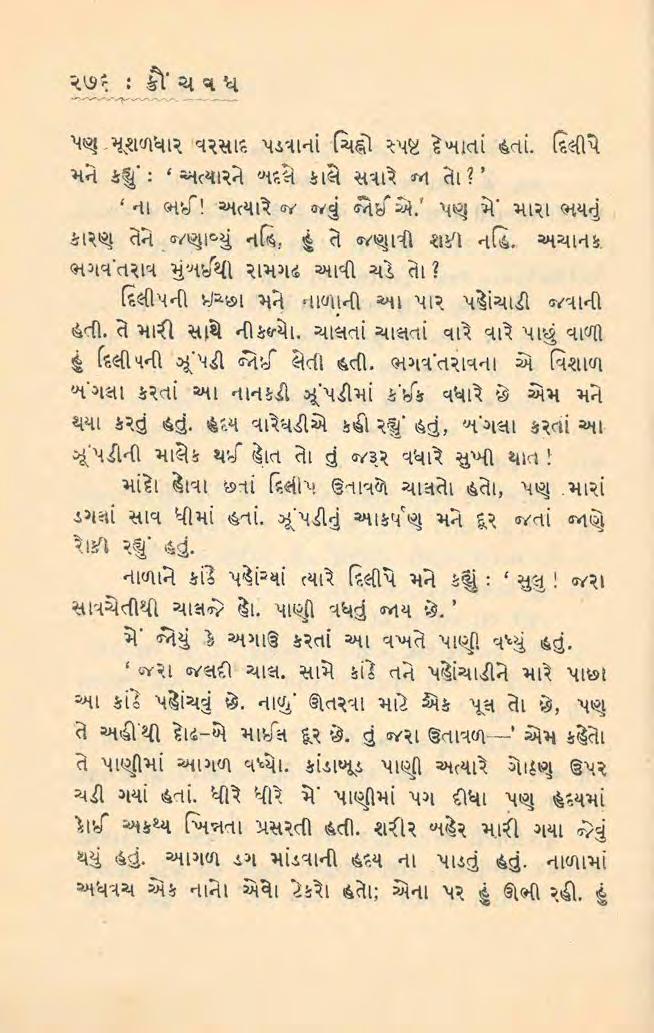 ૨૭૬ : ક્રૌંચવધ
પણ મૂશળધાર વરસાદ પડવાનાં ચિહ્નો સ્પષ્ટ દેખાતાં હતાં. દિલીપે
મને કહ્યું : ‘ અત્યારને બદલે કાલે સવારે જા તો ? ’
‘ ના ભઈ! અત્યારે જ જવું જોઈએ.’ પણ મેં મારા ભયનું
કારણ તેને જણાવ્યું નહિ, હું તે જણાવી શકી નહિ. અચાનક
ભગવંતરાવ મુંબઈથી રામગઢ આવી ચડે તો ?
દિલીપની ઇચ્છા મને નાળાની આ પાર પહોંચાડી જવાની
હતી. તે મારી સાથે નીકળ્યો. ચાલતાં ચાલતાં વારે વારે પાછું વાળી
હું દિલીપની ઝૂંપડી જોઈ લેતી હતી. ભગવંતરાવના એ વિશાળ
બંગલા કરતાં આ નાનકડી ઝૂંપડીમાં કંઈક વધારે છે એમ મને
થયા કરતું હતું. હૃદય વારેઘડીએ કહી રહ્યું હતું, બંગલા કરતાં આ
ઝૂંપડીની માલેક થઈ હોત તો તું જરૂર વધારે સુખી થાત !
માંદો હોવા છતાં દિલીપ ઉતાવળે ચાલતો હતો, પણ મારાં
ડગલાં સાવ ધીમાં હતાં. ઝૂંપડીનું આકર્ષણ મને દૂર જતાં જાણે
રોકી રહ્યું હતું.
નાળાને કાંઠે પહોંચ્યાં ત્યારે દિલીપે મને કહ્યું : ‘ સુલુ ! જરા
સાવચેતીથી ચાલજે હો. પાણી વધતું જાય છે. ’
મેં જોયું કે અગાઉ કરતાં આ વખતે પાણી વધ્યું હતું.
‘ જરા જલદી ચાલ. સામે કાંઠે તને પહોંચાડીને મારે પાછા
આ કાંઠે પહોંચવું છે. નાળું ઊતરવા માટે એક પૂલ તો છે, પણ
તે અહીંથી દોઢ-બે માઈલ દૂર છે. તું જરા ઉતાવળ—’ એમ કહેતો
તે પાણીમાં આગળ વધ્યો. કાંડાબૂડ પાણી અત્યારે ગોઠણ ઉપર
ચડી ગયાં હતાં. ધીરે ધીરે મેં પાણીમાં પગ દીધા પણ હૃદયમાં
કોઈ અકથ્ય ખિન્નતા પ્રસરતી હતી. શરીર બહેર મારી ગયા જેવું
થયું હતું. આગળ ડગ માંડવાની હૃદય ના પાડતું હતું. નાળામાં
અધવચ એક નાનો એવો ટેકરો હતો; એના પર હું ઊભી રહી. હું